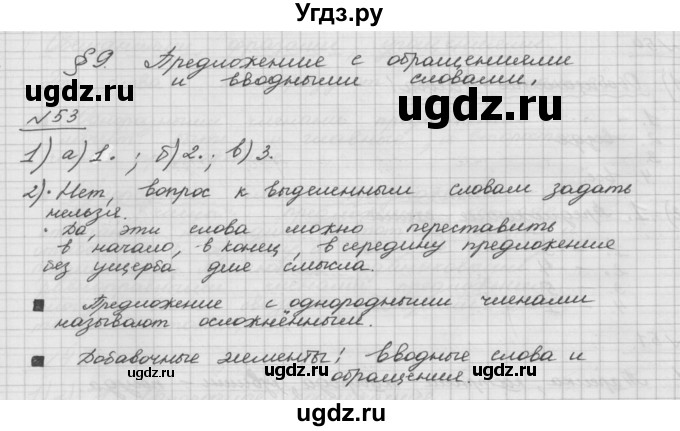 Угдз.ру
§9. Предложение с обращениями
и вводными словами.
ugdz.ru
ugdz.ru
№53
1) а) 1. ; б) 2. ; в) 3.
2) · Нет, вопрос к выделенным словам задать
нельзя.
· Да, эти слова можно переставить
в начало, в конец, в середину предложения
без ущерба для смысла.
ugdz.ru
ugdz.ru
■ Предложение с однородными членами
называют осложнённым.
■ Добавочные элементы: вводные слова и
обращения.
ugdz.ru
ugdz.ru